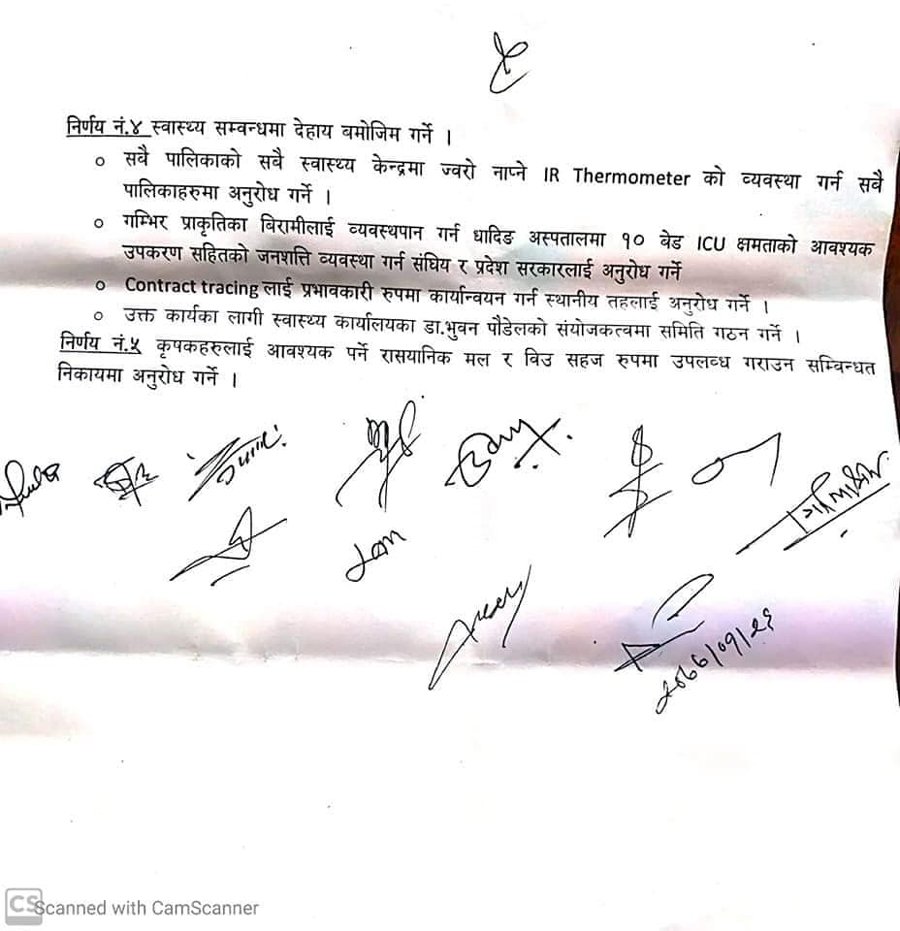 निर्णय नं.४ स्वास्थ्य सम्बन्धमा देहाय बमोजिम गर्ने ।
o सवै पालिकाको सवै स्वास्थ्य केन्द्रमा ज्वरो नाप्ने IR Thermometer को व्यवस्था गर्न सवै
पालिकाहरुमा अनुरोध गर्ने ।
o गम्भिर प्राकृतिका बिरामीलाई व्यवस्थपान गर्न धादिङ अस्पतालमा १० बेड ICU क्षमताको आवश्यक
उपकरण सहितको जनशत्ति व्यवस्था गर्न संघिय र प्रदेश सरकारलाई अनुरोध गर्ने
o Contract tracing लाई प्रभावकारी रुपमा कार्यान्वयन गर्न स्थानीय तहलाई अनुरोध गर्ने ।
o उक्त कार्यका लागी स्वास्थ्य कार्यालयका डा.भुवन पौडेलको संयोजकत्वमा समिति गठन गर्ने ।
निर्णय नं.५ कृषकहरुलाई आवश्यक पर्ने रासयानिक मल र विउ सहज रुपमा उपलव्ध गराउन सम्बिन्धत
निकायमा अनुरोध गर्ने ।
CS Scanned with CamScanner